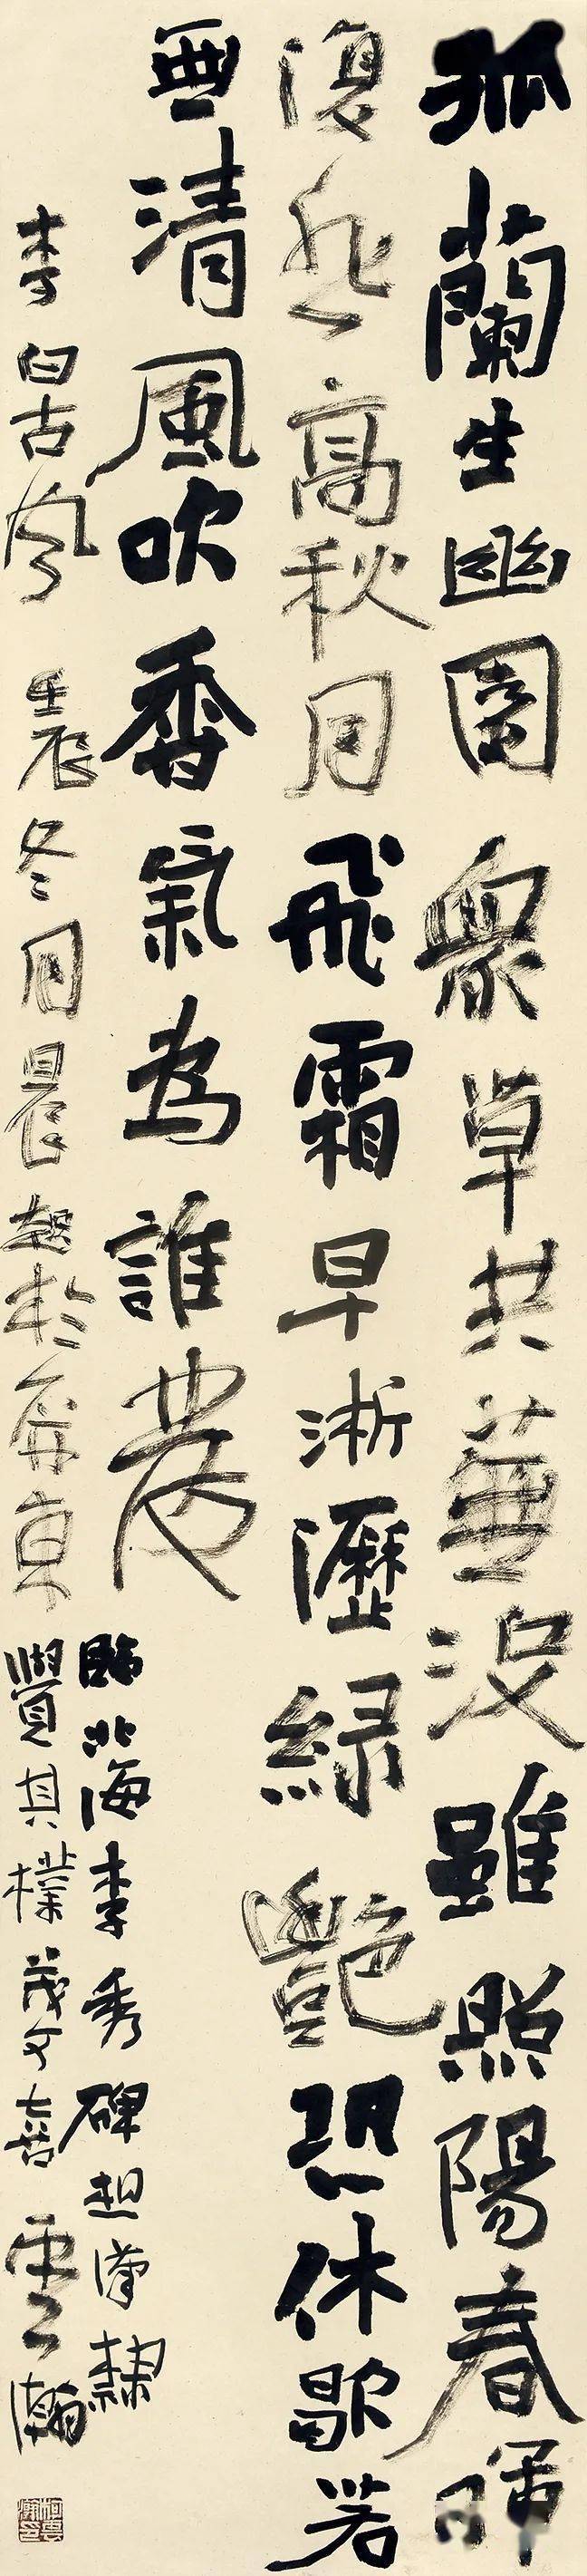 孤蘭生幽園衆草共蕪沒雖照陽春暉
復悲高秋月飛霜早淅瀝綠艷恐休歇若
無清風吹香氣為誰發
李白古風 壬辰冬月晨起於
臨北海李秀碑想漢隸
覺其樸茂可喜 雲瀚
柯雲瀚印